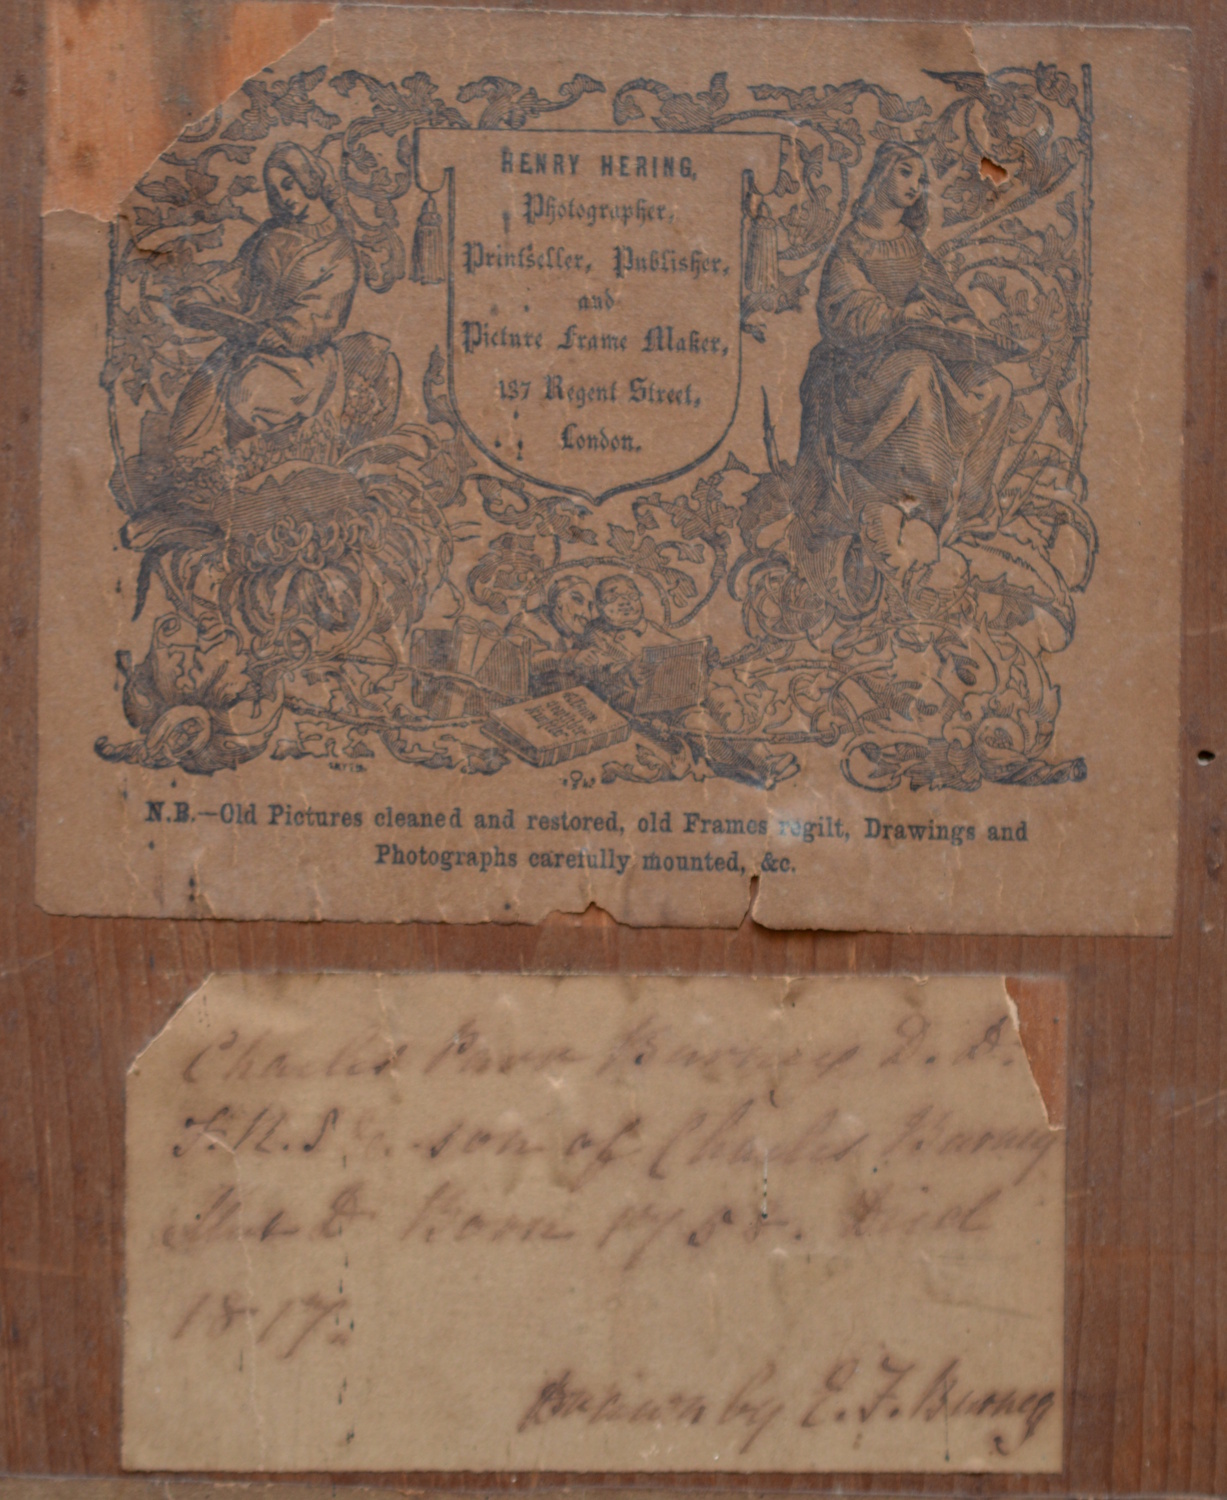 HENRY HERING,
Photographer,
Printseller, Publisher,
and
Picture Frame Maker,
137 Regent Street,
London.
N.B.—Old Pictures cleaned and restored, old Frames regilt, Drawings and
Photographs carefully mounted, &c.
Charles Parr Burney D. D.
F. R. S &c. son of Charles Burney
Mus D Born 1758. Died
1817.
Drawn by E. F. Burney